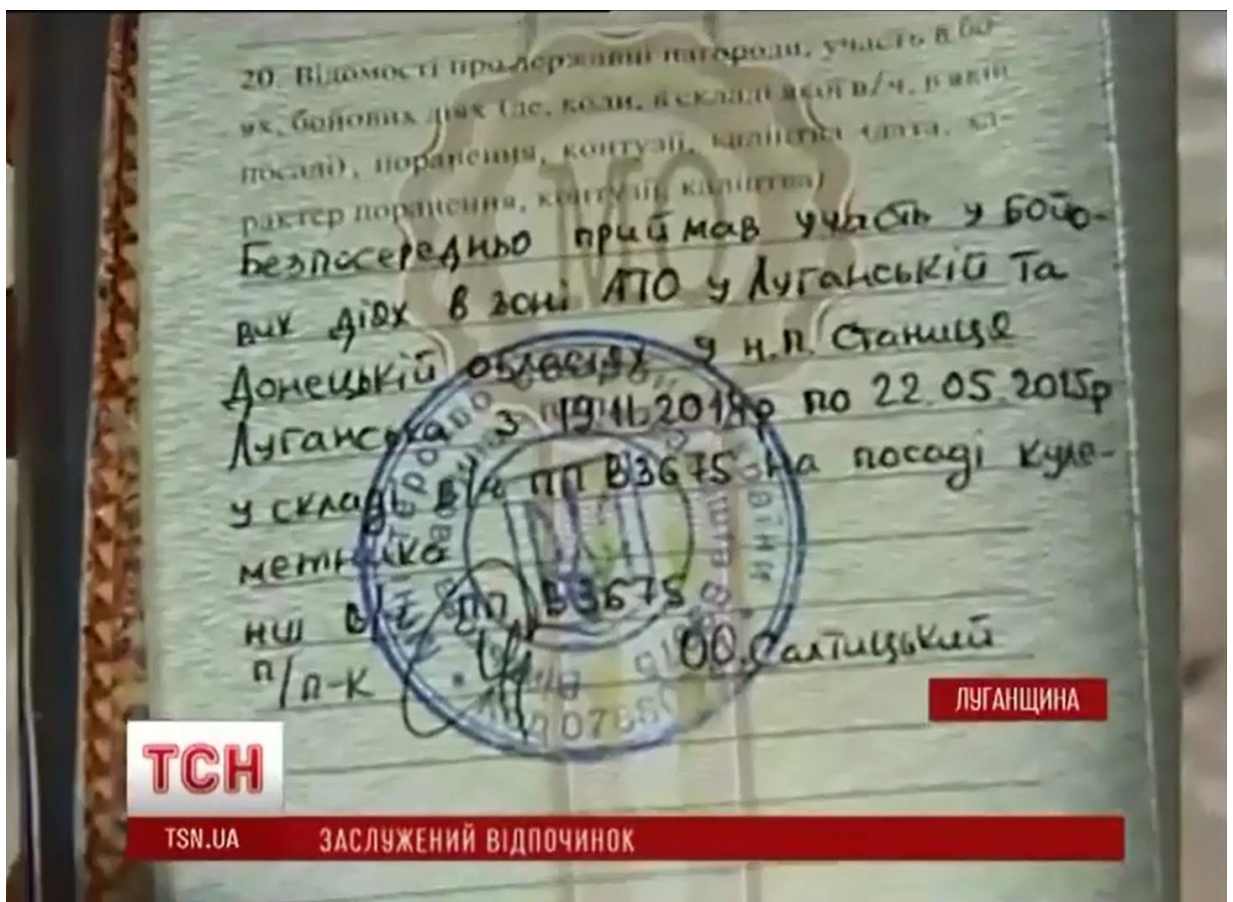 20. Відомості про державні нагороди, участь в бо-
ях, бойових діях (де, коли, в складі якої в/ч, в якій
посаді), поранення, контузії, каліцтва (дата, ха-
рактер поранення, контузії, каліцтва)
МО
Безпосередньо приймав участь у бойо-
вих діях в зоні АТО у Луганській та
Донецькій областях у н.п. Станиця
Луганська з 19.11.2014р по 22.05.2015р
у складі в/ч ПП В3675 на посаді куле-
метника
НШ в/ч ПП В3675
п/п-к О.О. Салтицький
ЛУГАНЩИНА
ТСН
TSN.UA ЗАСЛУЖЕНИЙ ВІДПОЧИНОК